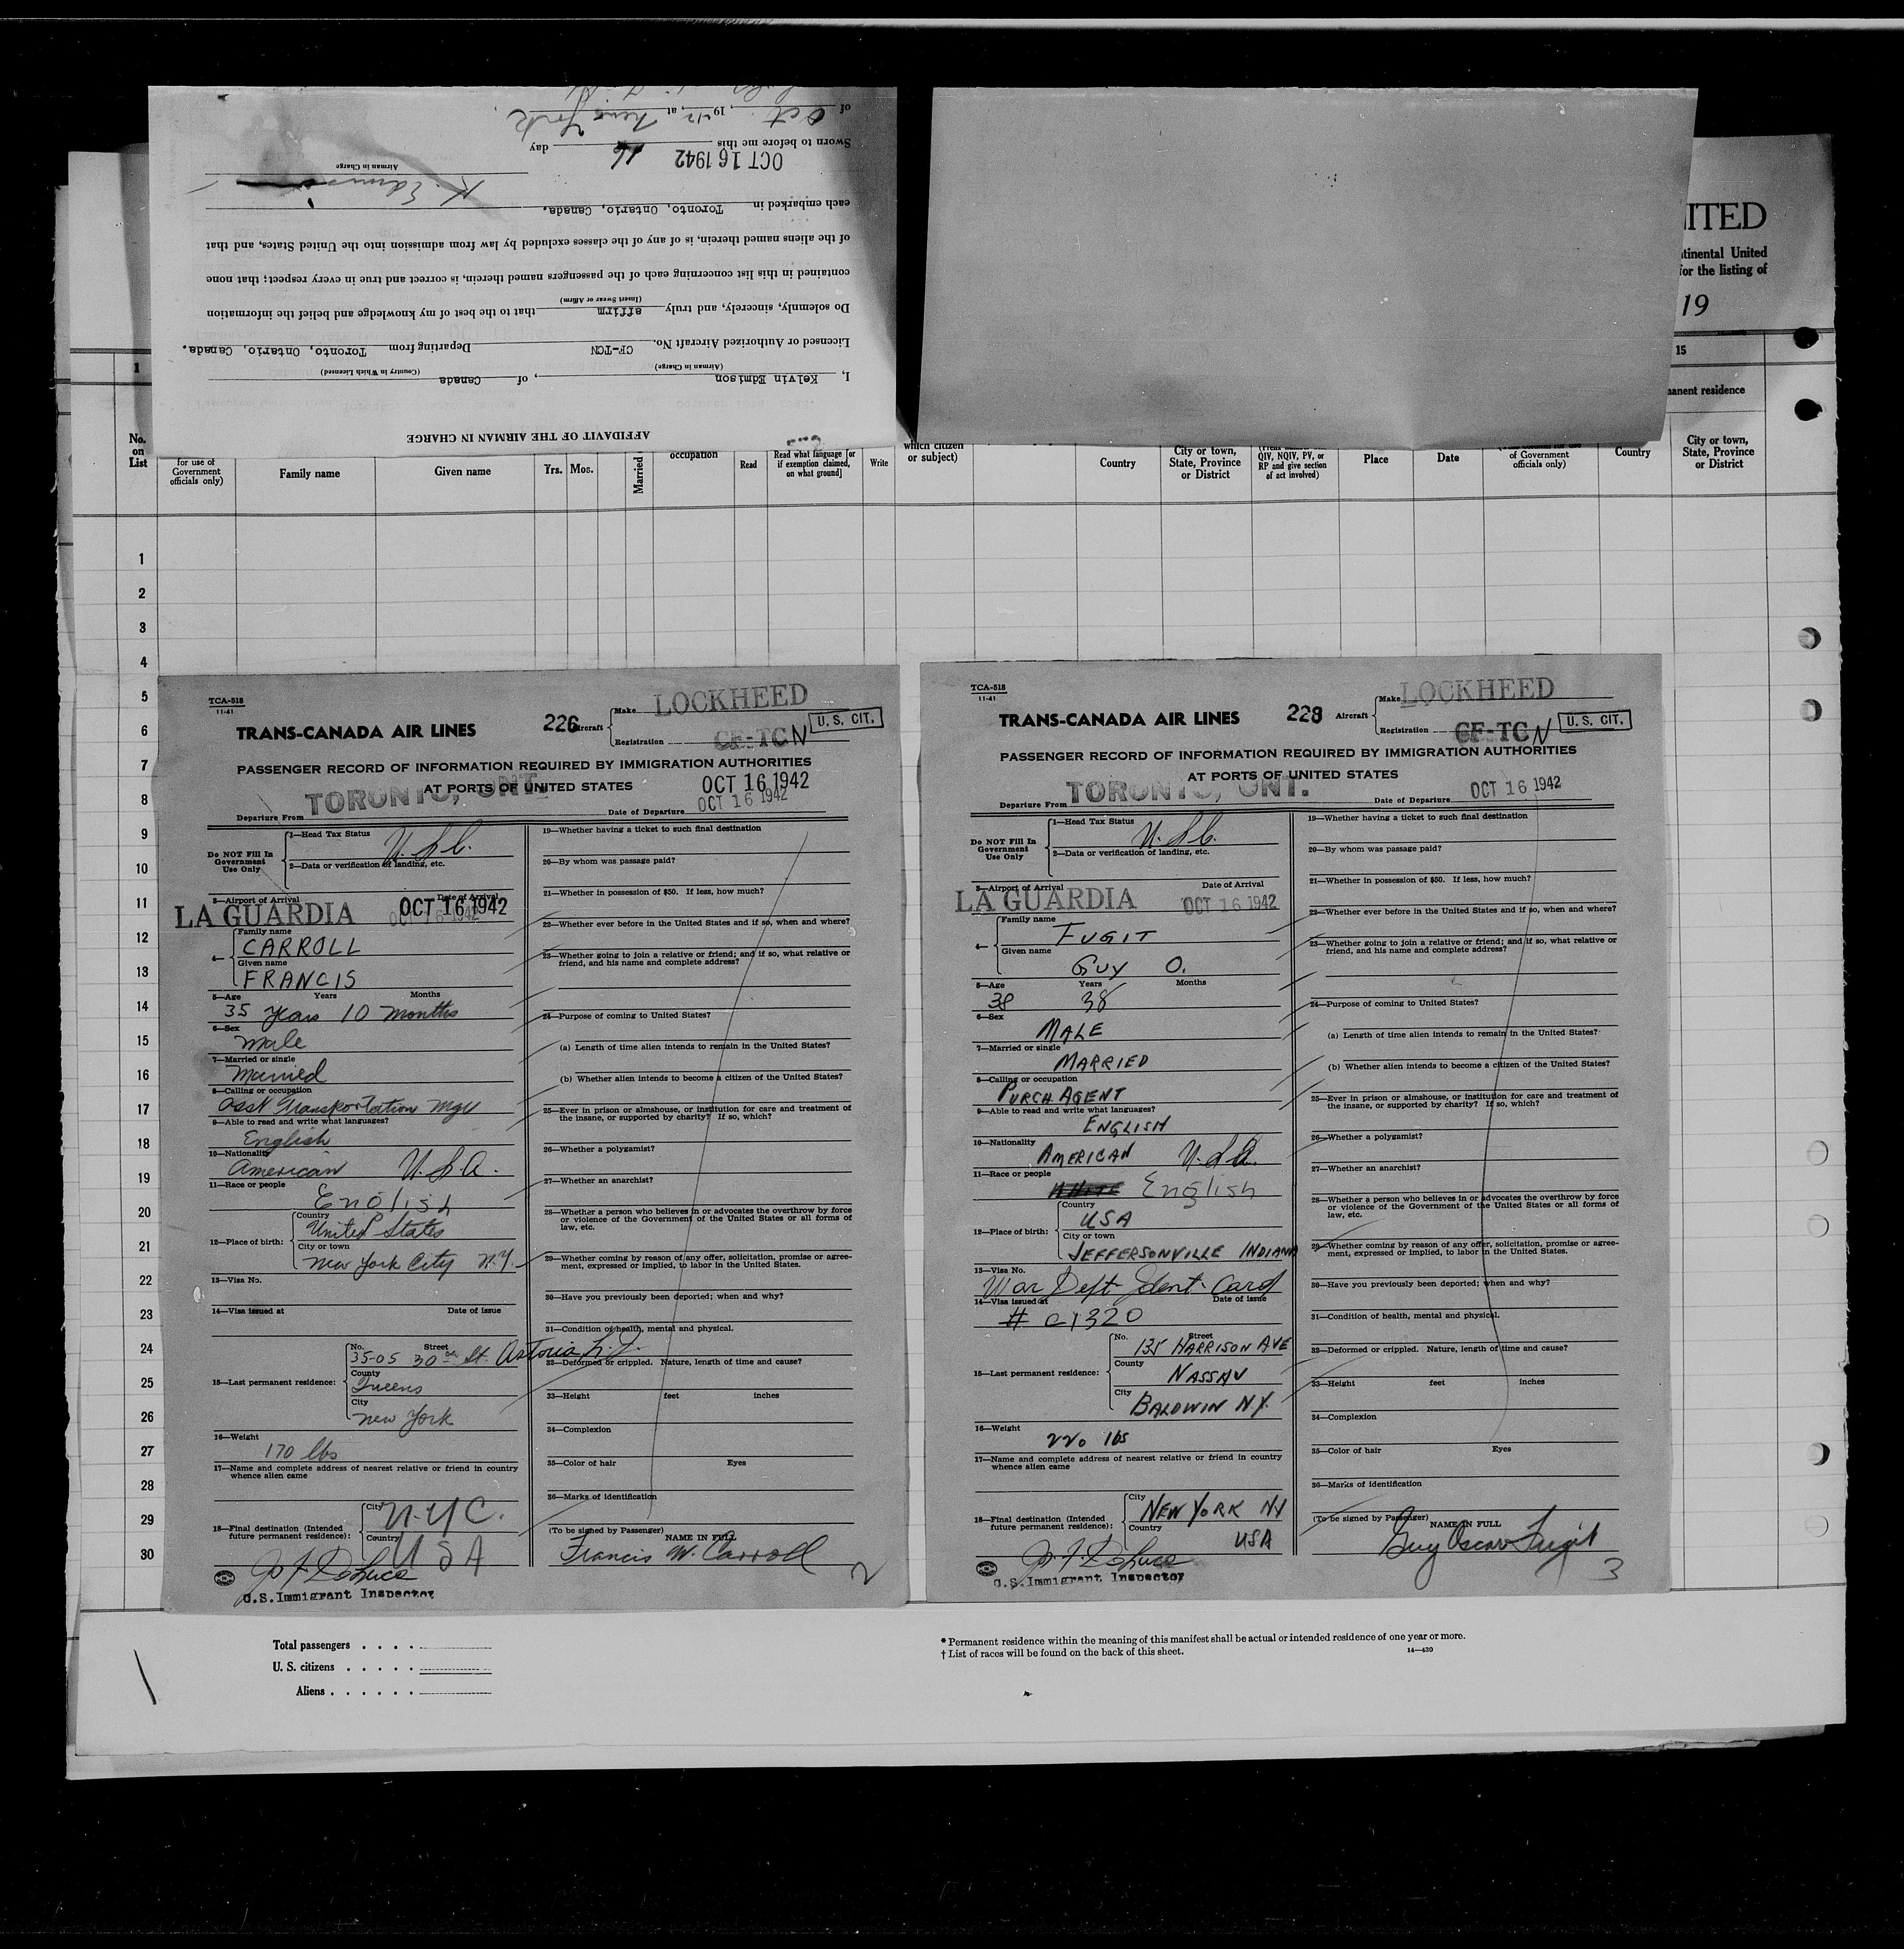 AFFIDAVIT OF THE AIRMAN IN CHARGE
I, Kelvin Edmison, of Canada
(Airman in Charge) (Country in Which Licensed)
Licensed or Authorized Aircraft No. CF-TCN Departing from Toronto, Ontario, Canada.
Do solemnly, sincerely, and truly affirm that to the best of my knowledge and belief the information
(Insert Swear or Affirm)
contained in this list concerning each of the passengers named therein, is correct and true in every respect; that none
of the aliens named therein, is of any of the classes excluded by law from admission into the United States, and that
each embarked in Toronto, Ontario, Canada.
K. Edmison
Airman in Charge
OCT 16 1942
Sworn to before me this 16 day
of Oct, 1942, at New York
ITED
tinental United
for the listing of
19
1
15
manent residence
No. on List
for use of Government officials only)
Family name
Given name
Yrs.
Mos.
Married
occupation
Read
Read what language [or if exemption claimed, on what ground]
Write
which citizen or subject)
Country
City or town, State, Province or District
QIV, NQIV, PV, or RP and give section of act involved)
Place
Date
of Government officials only)
Country
City or town, State, Province or District
1
2
3
4
5
6
7
8
9
10
11
12
13
14
15
16
17
18
19
20
21
22
23
24
25
26
27
28
29
30
TCA-518
11-41
TRANS-CANADA AIR LINES
226
Aircraft
Make LOCKHEED
Registration CF-TCN
U. S. CIT.
PASSENGER RECORD OF INFORMATION REQUIRED BY IMMIGRATION AUTHORITIES
AT PORTS OF UNITED STATES
OCT 16 1942
Departure From TORONTO, ONT.
Date of Departure OCT 16 1942
Do NOT Fill In Government Use Only
1—Head Tax Status
U.S.C.
2—Data or verification of landing, etc.
3—Airport of Arrival Date of Arrival
LA GUARDIA OCT 16 1942
OCT 16 1942
4— Family name
CARROLL
Given name
FRANCIS
5—Age Years Months
35 Years 10 Months
6—Sex
Male
7—Married or single
Married
8—Calling or occupation
Asst Transportation Mgr
9—Able to read and write what languages?
English
10—Nationality
American U.S.A.
11—Race or people
English
12—Place of birth:
Country
United States
City or town
New York City N.Y.
13—Visa No.
14—Visa issued at Date of issue
15—Last permanent residence:
No. Street
35-05 30th St. Astoria L.I.
County
Queens
City
New York
16—Weight
170 lbs
17—Name and complete address of nearest relative or friend in country
whence alien came
18—Final destination (Intended future permanent residence):
City
N.Y.C.
Country
USA
U.S.Immigrant Inspector
19—Whether having a ticket to such final destination
20—By whom was passage paid?
21—Whether in possession of $50. If less, how much?
22—Whether ever before in the United States and if so, when and where?
23—Whether going to join a relative or friend; and if so, what relative or
friend, and his name and complete address?
24—Purpose of coming to United States?
(a) Length of time alien intends to remain in the United States?
(b) Whether alien intends to become a citizen of the United States?
25—Ever in prison or almshouse, or institution for care and treatment of
the insane, or supported by charity? If so, which?
26—Whether a polygamist?
27—Whether an anarchist?
28—Whether a person who believes in or advocates the overthrow by force
or violence of the Government of the United States or all forms of
law, etc.
29—Whether coming by reason of any offer, solicitation, promise or agree-
ment, expressed or implied, to labor in the United States.
30—Have you previously been deported; when and why?
31—Condition of health, mental and physical.
32—Deformed or crippled. Nature, length of time and cause?
33—Height feet inches
34—Complexion
35—Color of hair Eyes
36—Marks of identification
(To be signed by Passenger) NAME IN FULL
Francis W. Carroll
2
TCA-518
11-41
TRANS-CANADA AIR LINES
228
Aircraft
Make LOCKHEED
Registration CF-TCN
U. S. CIT.
PASSENGER RECORD OF INFORMATION REQUIRED BY IMMIGRATION AUTHORITIES
AT PORTS OF UNITED STATES
Departure From TORONTO, ONT.
Date of Departure OCT 16 1942
Do NOT Fill In Government Use Only
1—Head Tax Status
U.S.C.
2—Data or verification of landing, etc.
3—Airport of Arrival Date of Arrival
LA GUARDIA OCT 16 1942
4— Family name
FUGIT
Given name
GUY O.
5—Age Years Months
38 38
6—Sex
MALE
7—Married or single
MARRIED
8—Calling or occupation
PURCH AGENT
9—Able to read and write what languages?
ENGLISH
10—Nationality
AMERICAN U.S.A.
11—Race or people
WHITE English
12—Place of birth:
Country
USA
City or town
JEFFERSONVILLE INDIANA
13—Visa No.
War Dept Ident. Card
14—Visa issued at Date of issue
# C1320
15—Last permanent residence:
No. Street
135 HARRISON AVE
County
NASSAU
City
BALDWIN N.Y.
16—Weight
220 lbs
17—Name and complete address of nearest relative or friend in country
whence alien came
18—Final destination (Intended future permanent residence):
City
NEW YORK NY
Country
USA
U.S.Immigrant Inspector
19—Whether having a ticket to such final destination
20—By whom was passage paid?
21—Whether in possession of $50. If less, how much?
22—Whether ever before in the United States and if so, when and where?
23—Whether going to join a relative or friend; and if so, what relative or
friend, and his name and complete address?
24—Purpose of coming to United States?
(a) Length of time alien intends to remain in the United States?
(b) Whether alien intends to become a citizen of the United States?
25—Ever in prison or almshouse, or institution for care and treatment of
the insane, or supported by charity? If so, which?
26—Whether a polygamist?
27—Whether an anarchist?
28—Whether a person who believes in or advocates the overthrow by force
or violence of the Government of the United States or all forms of
law, etc.
29—Whether coming by reason of any offer, solicitation, promise or agree-
ment, expressed or implied, to labor in the United States.
30—Have you previously been deported; when and why?
31—Condition of health, mental and physical.
32—Deformed or crippled. Nature, length of time and cause?
33—Height feet inches
34—Complexion
35—Color of hair Eyes
36—Marks of identification
(To be signed by Passenger) NAME IN FULL
Guy Oscar Fugit
3
Total passengers . . . .
U. S. citizens . . . . .
Aliens . . . . . .
* Permanent residence within the meaning of this manifest shall be actual or intended residence of one year or more.
† List of races will be found on the back of this sheet.
14—430